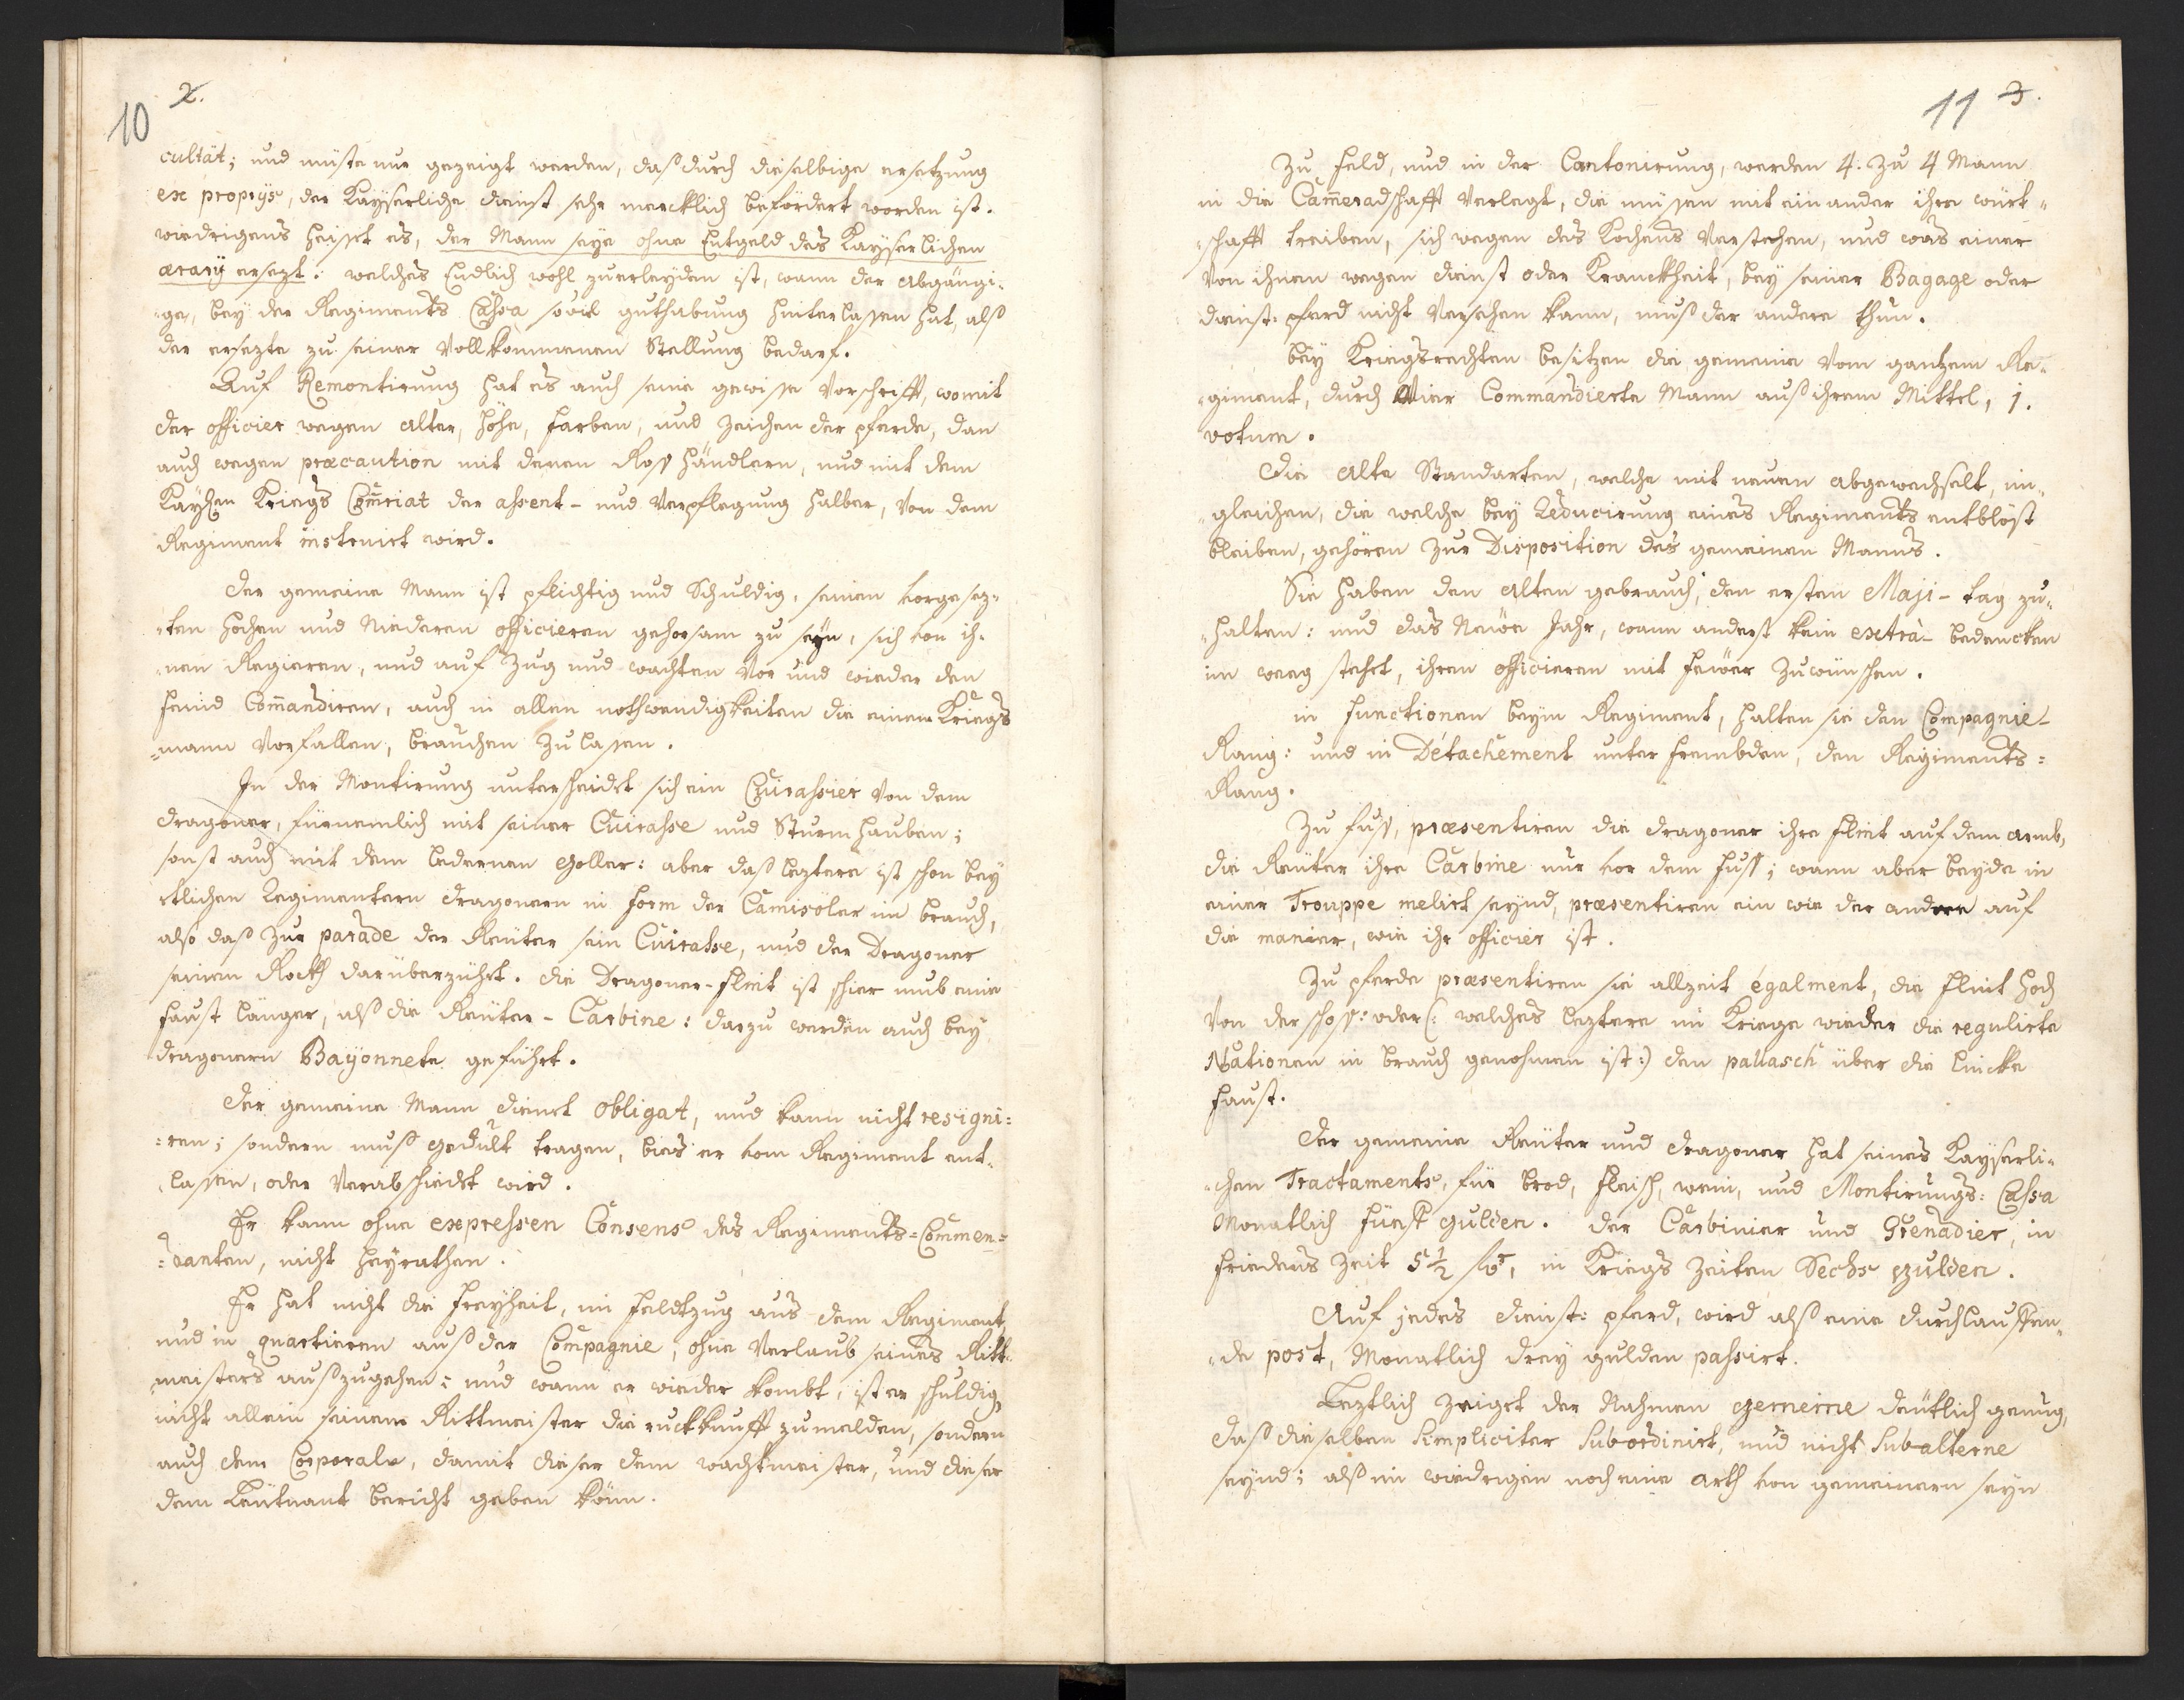 10 2.
cultät; und müste nur gezeigt werden, daß durch dieselbige ersetzung
ex proprÿs, der Kaÿserliche dienst sehr mercklich befördert worden ist.
wiedrigens heisset es, der Mann seÿe ohne Entgeld des Kaÿserlichen
ærarÿ ersezt: welches Endlich wohl zuerleyden ist, wann der abgängi„
„ge, beÿ der Regiments Cassa soviel guthabung hinterlassen hat, alß
der ersezte zu seiner Vollkommenen Stellung bedarf.
Auf Remontirung hat es auch seine gewisse Vorschrifft, womit
der officier wegen alter, höhe, farben, und zeichen der pferde, dan
auch wegen præcaution mit denen Roßhändlern, und mit dem
Kaÿ:en Kriegs Com̃riat der assent- und Verpflegung halber, Von dem
Regiment instruirt wird.
Der gemeine Mann ist pflichtig und Schuldig, seinen vorgesez„
„ten hochen und Niederen officieren gehorsam zu seÿn, sich von ih„
„nen Regieren, und auf Zug und wachten Vor und wieder den
feind Com̃andiren, auch in allen nothwendigkeiten die einem Kriegs
„mann Vorfallen, brauchen zulassen.
In der Montirung unterscheidet sich ein Cuirassier Von dem
dragoner, fürnemlich mit seiner Cuirasse und Sturmhauben;
sonst auch mit dem ledernen Goller: aber daß leztere ist schon beÿ
etlichen Regimentern dragonern in form der Camisöler im brauch,
also daß zur parade der Reüter sein Cuirasse, und der Dragoner
seinen Rockh darüberzühet. die Dragoner-flint ist schier umb eine
faust länger, alß die Reüter-Carbine: darzu werden auch beÿ
dragonern Baÿonnete geführt.
Der gemeine Mann dienet obligat, und kann nicht resigni=
=ren; sondern muß gedult tragen, bies er vom Regiment ent„
„lassen, oder Verabschiedet wird.
Er kann ohne expressen Consens des Regiments-Commen=
=danten, nicht heÿrathen.
Er hat nicht die freÿheit, im feldtzug aus dem Regiment,
und in quartieren auß der Compagnie, ohne Verlaub seines Ritt„
„meisters außzugehen; und wann er wieder kombt, ist er schuldig,
nicht allein seinem Rittmeister die ruckkunfft zumelden, sondern
auch dem Corporaln, damit dieser dem wachtmeister, und dieser
dem Leütnant bericht geben könn.
11 3.
Zu feld, und in der Cantonirung, werden 4. zu 4 Mann
in die Cam̃eradschafft Verlegt, die müssen mit einander ihre würt„
„schafft treiben, sich wegen des Kochens Verstehen, und was einer
Von ihnen wegen dienst oder Kranckheit, beÿ seiner Bagage oder
dienst-pferd nicht Versehen kann, muß der andere thun.
beÿ Kriegsrechten besitzen die gemeine Vom gantzem Re„
„giment, durch Vier Commandierte Mann auß ihrem Mittel, 1.
votum.
Die alte Standarten, welche mit neuen abgewechselt, im„
„gleichen, die welche beÿ Reducirung eines Regiments entblöst
bleiben, gehören zur Disposition des gemeinen Manns.
Sie haben den alten gebrauch, den ersten Maji-tag zu„
„halten: und das Neüe Jahr, wann anderst kein extrà- bedencken
im weeg stehet, ihren officieren mit feüer zuwünschen.
in functionen beÿm Regiment, halten sie den Compagnie-
Rang: und in Détachement unter frembden, den Regiments=
Rang.
Zu fuß, præsentiren die dragoner ihre flint auf dem armb,
die Reüter ihre Carbine nur vor dem fuß; wann aber beÿde in
einer Trouppe melirt seÿnd, præsentiren ein wie der andere auf
die manier, wie ihr officier ist.
Zu pferde præsentiren sie allzeit égalment, die flint hoch
Von der schoß: oder (: welches leztere im Kriege wieder die regulirte
Nationen in brauch genohmen ist:) den pallasch über die lincke
faust.
Der gemeine Reüter und dragoner hat seines Kaÿserli„
„chen Tractaments, für brod, fleisch, wein, und Montirungs-Cassa
Monatlich fünf gulden. der Carbinier und Grenadier, in
friedens zeit 5½ flo, in Kriegs zeiten Sechs gulden.
Auf jedes dienst-pferd, wird alß eine durchlauffen„
„de post, Monatlich dreÿ gulden passirt.
Leztlich zeiget der Nahmen gemeine deütlich genug,
daß dieselben Simpliciter Subordinirt, und nicht Subalterne
seÿnd; alß im wiedrigen noch eine arth von gemeinern seÿn